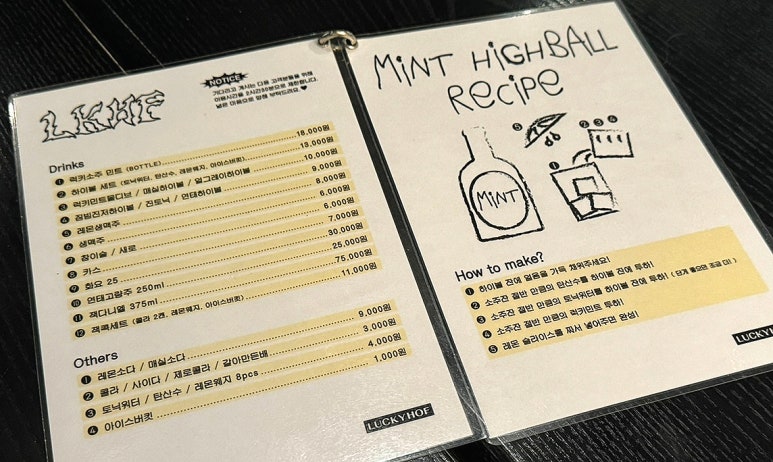 LKHF
NOTICE
기다리고 계시는 다음 고객분들을 위해
이용시간을 2시간30분으로 제한합니다.
넓은 마음으로 양해 부탁드려요.♥
Drinks
❶ 럭키소주 민트 (BOTTLE) 18,000원
❷ 하이볼 세트 (토닉워터, 탄산수, 레몬웨지, 아이스버킷) 13,000원
❸ 럭키민트몰디브 / 매실하이볼 / 얼그레이하이볼 10,000원
❹ 짐빔진저하이볼 / 진토닉 / 연태하이볼 9,000원
❺ 레몬생맥주 8,000원
❻ 생맥주 6,000원
❼ 참이슬 / 새로 6,000원
❽ 카스 7,000원
❾ 화요 25 30,000원
❿ 연태고량주 250ml 25,000원
⓫ 잭다니엘 375ml 75,000원
⓬ 잭콕세트 (콜라 2캔, 레몬웨지, 아이스버킷) 11,000원
Others
❶ 레몬소다 / 매실소다 9,000원
❷ 콜라 / 사이다 / 제로콜라 / 갈아만든배 3,000원
❸ 토닉워터 / 탄산수 / 레몬웨지 8pcs 4,000원
❹ 아이스버킷 1,000원
LUCKYHOF
MINT HIGHBALL
RECIPE
❺
❷ ❸ ❹
❶
MINT
How to make?
❶ 하이볼 잔에 얼음을 가득 채워주세요!
❷ 소주잔 절반 만큼의 탄산수를 하이볼 잔에 투하!
❸ 소주잔 절반 만큼의 토닉워터를 하이볼 잔에 투하! ( 단거 좋으면 조금 더! )
❹ 소주잔 절반 만큼의 럭키민트 투하!
❺ 레몬 슬라이스를 짜서 넣어주면 완성!
LUCKYHO